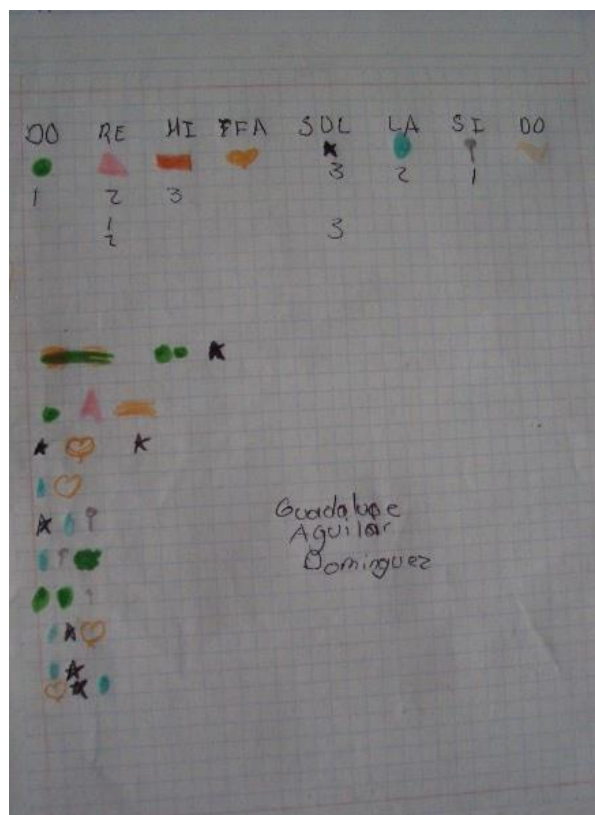 DO RE MI FFA SOL LA SI DO
3 2 1
1 2 3
1 3
2
Guadalupe
Aguilar
Dominguez